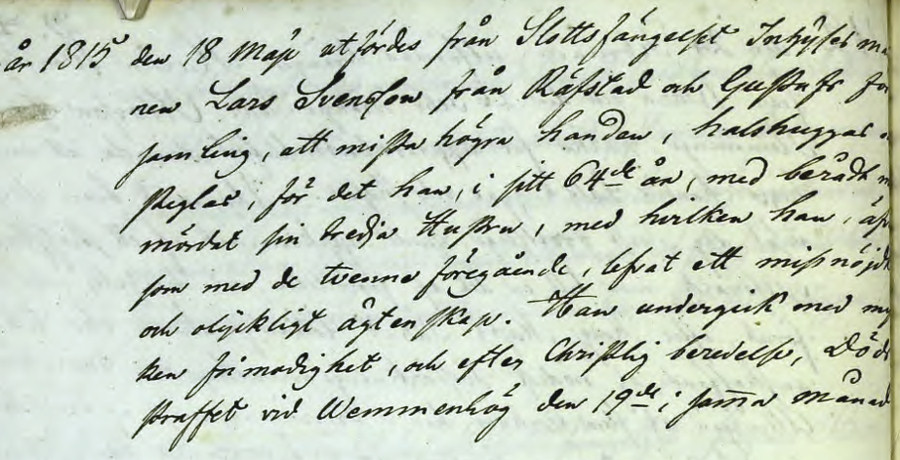 år 1815 den 18 Maji utfördes från Slottsfängelset Inhyses ma
nen Lars Svensson från Räfstad och Gustafs för
samling, att mista högra handen, halshuggas o
steglas, för det han, i sitt 64de år, med berådt m
mördat sin tredja Hustru, med hvilken han, äf
som med de tvenne föregående, lefvat ett missnöjdt
och olyckligt ägtenskap. Han undergick med my
ken frimodighet, och efter Christlig beredelse, Döds
straffet vid Wemmenhög den 19de i samma månad